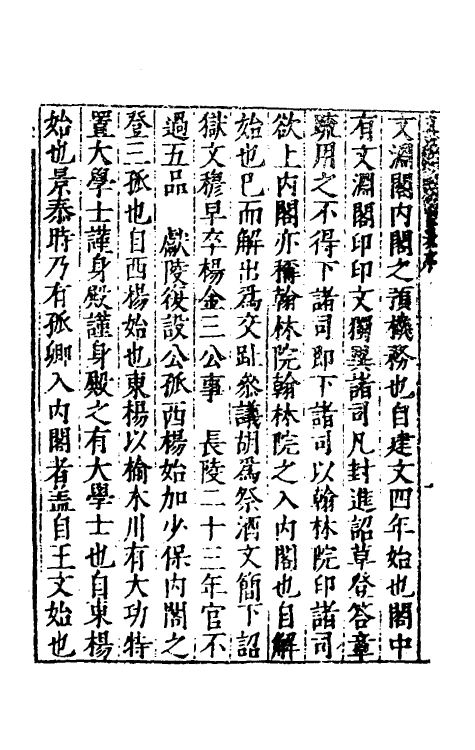 文淵閣內閣之預機務也自建文四年始也閣中
有文淵閣印印文獨異諸司凡封進詔草登答章
疏用之不得下諸司即下諸司以翰林院印諸司
欲上內閣亦稱翰林院翰林院之入內閣也自解
始也已而解出爲交趾參議胡爲祭酒文簡下詔
獄文穆早卒楊金三公事　長陵二十三年官不
過五品　獻陵復設公孤西楊始加少保內閣之
登三孤也自西楊始也東楊以榆木川有大功特
置大學士謹身殿謹身殿之有大學士也自東楊
始也景泰時乃有孤卿入內閣者盖自王文始也